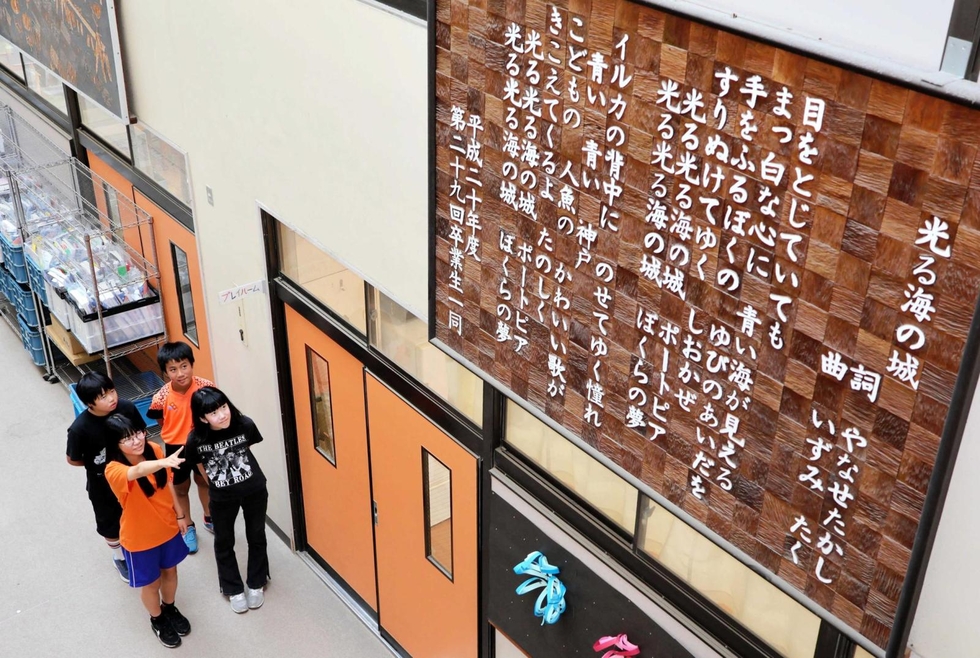 光る海の城
詞 やなせたかし
曲 いずみ たく
目をとじていても
まつ白な心に 青い海が見える
手をふるぼくの ゆびのあいだを
すりぬけてゆく しおかぜ
光る光る海の城 ポートピア
光る光る海の城 ぼくらの夢
イルカの背中に
青い 青い 神戸 のせてゆく憧れ
こどもの 人魚の かわいい歌が
きこえてくるよ たのしく
光る光る海の城 ポートピア
光る光る海の城 ぼくらの夢
平成二十年度
第二十九回卒業生一同
プレイルーム
THE BEATLES
BEY ROAD